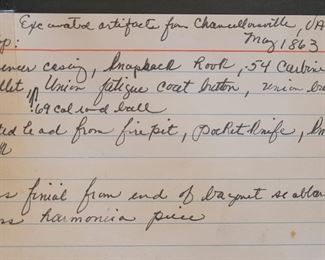 Excavated artifacts from Chancellorsville, VA
May 1863
op:
encer casing, Knapsack Hook, .54 Carbine
llet, Union fatigue coat button, union
.69 cal rnd ball
ted lead from firepit, pocket Knife,
ss finial from end of bayonet scabbar
ss harmonica piece